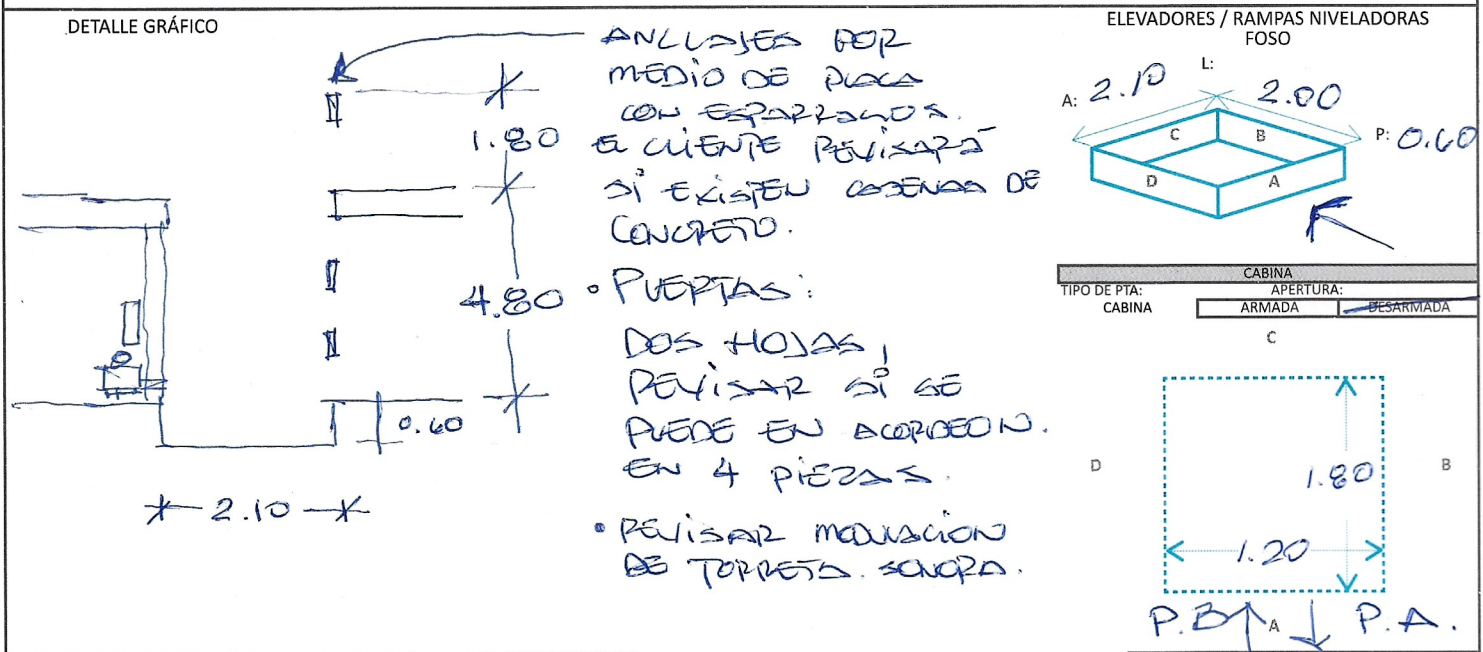 DETALLE GRÁFICO
ANCLAJES POR
MEDIO DE PLACA
CON ESPARRAGOS.
EL CLIENTE REVISARÁ
SI EXISTEN CADENAS DE
CONCRETO.
1.80
4.80
0.60
2.10
• PUERTAS:
DOS HOJAS,
REVISAR SI SE
PUEDE EN ACORDEON.
EN 4 PIEZAS.
• REVISAR MODULACION
DE TORRETA SONORA.
ELEVADORES / RAMPAS NIVELADORAS
FOSO
L:
A: 2.10 2.00
P: 0.60
C B
D A
CABINA
TIPO DE PTA: APERTURA:
CABINA ARMADA DESARMADA
C
D 1.80 B
1.20
P.B A P.A.